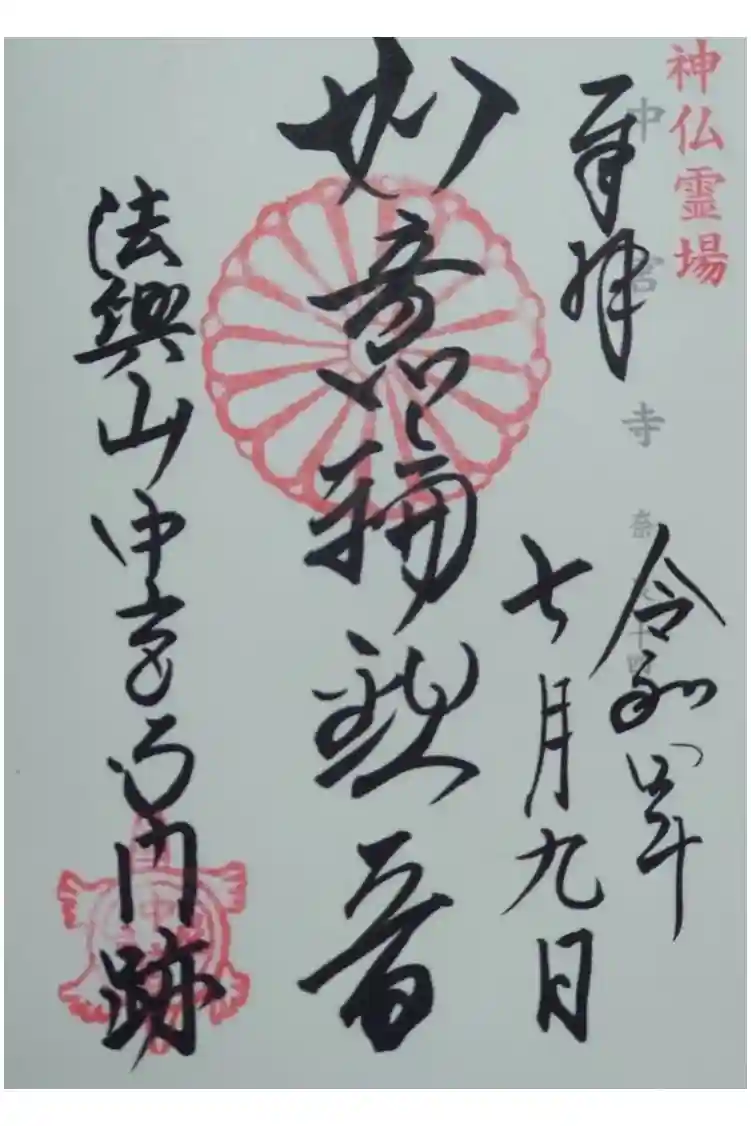 神仏霊場
中宮寺 奈良十四
奉拝
令和四年
七月九日
如意輪観音
法興山中宮寺門跡